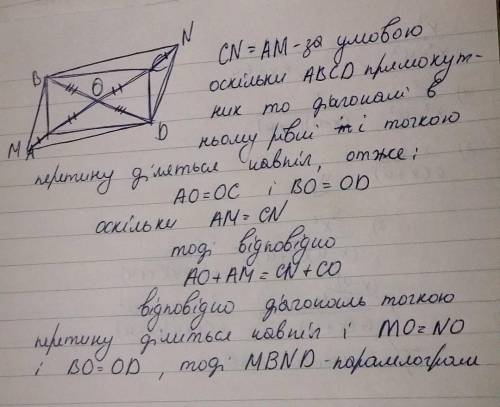 N
CN = AM - за умовою
B
C
O
оскільки ABCD прямокут-
ник то діагоналі в
D
ньому рівні і точкою
M
A
перетину діляться навпіл, отже:
AO = OC і BO = OD
оскільки AM = CN
тоді відповідно
AO + AM = CN + CO
відповідно діагональ точкою
перетину ділиться навпіл і MO = NO
і BO = OD, тоді MBND - паралелограм